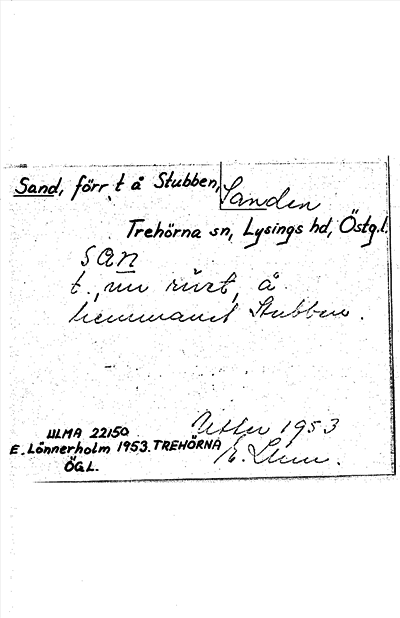 Sand, förr t å Stubben,
Sanden
Trehörna sn, Lysings hd, Östg.l.
san
t., nu rivet, å
hemmanet Stubben.
1953
E. Lönn.
ULMA 22150
E. Lönnerholm 1953. TREHÖRNA
ÖGL.